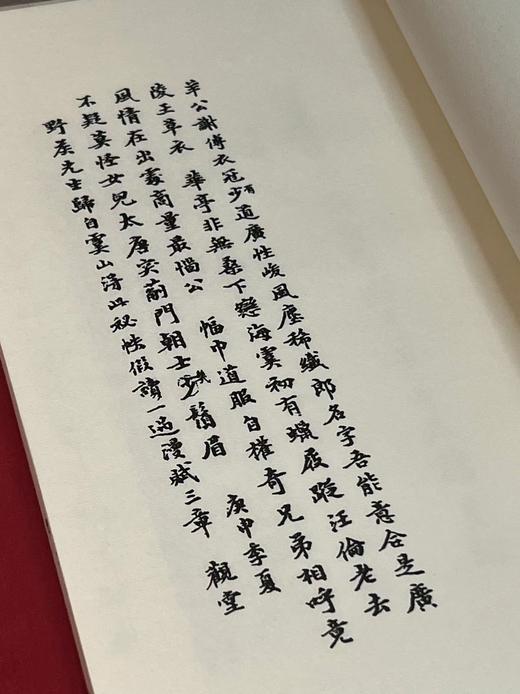 羊公謝傅衣冠少有道廣性峻風塵稀纖郎名字吾能意合是廣
陵王草衣 華亭非無桑下戀海雲初有蠟屐蹤汪倫老去
風情在出處商量最惱公 幅巾道服自權奇兄弟相呼竟
不疑莫怪女兒太唐突薊門朝士幾鬚眉 庚申季夏
野矦先生歸自雲山得此秘帙假讀一過漫賦三章 觀堂